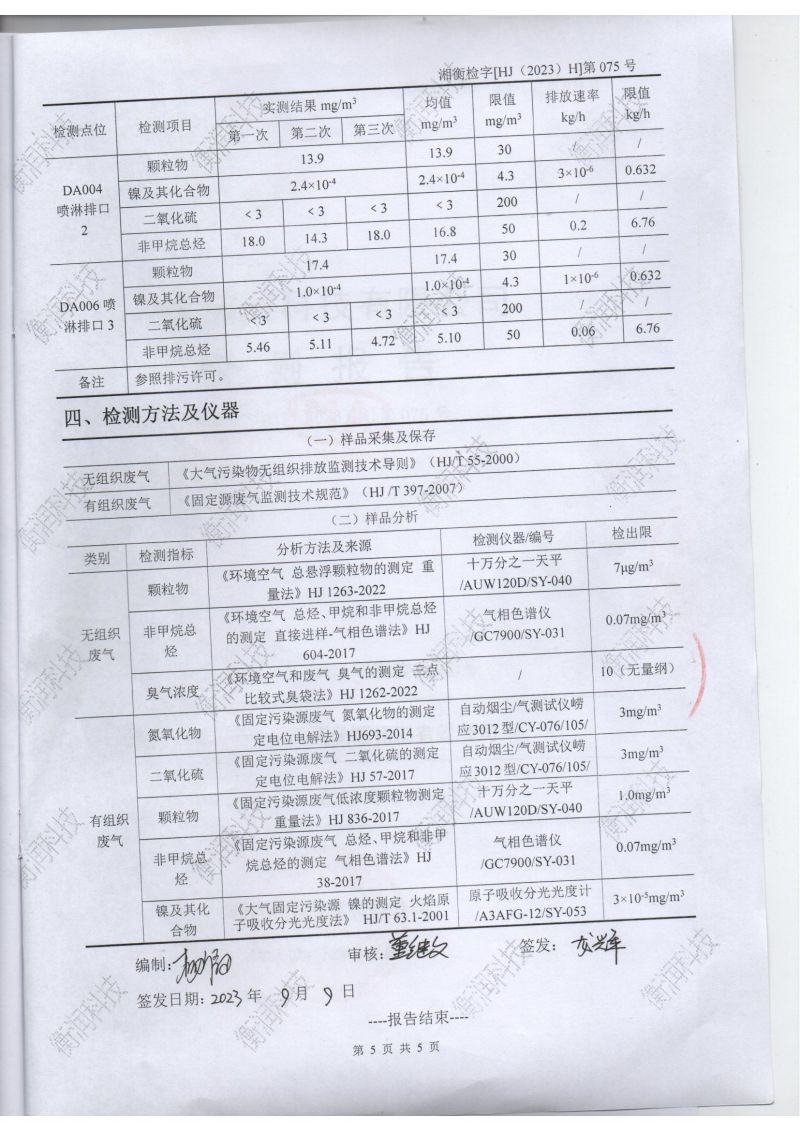 湘衡检字[HJ（2023）H]第 075 号
检测点位 检测项目 实测结果 mg/m³ 均值 mg/m³ 限值 mg/m³ 排放速率 kg/h 限值 kg/h
第一次 第二次 第三次
DA004 喷淋排口 2
颗粒物 13.9 13.9 30 / /
镍及其化合物 2.4×10⁻⁴ 2.4×10⁻⁴ 4.3 3×10⁻⁶ 0.632
二氧化硫 ＜3 ＜3 ＜3 ＜3 200 / /
非甲烷总烃 18.0 14.3 18.0 16.8 50 0.2 6.76
DA006 喷淋排口 3
颗粒物 17.4 17.4 30 / /
镍及其化合物 1.0×10⁻⁴ 1.0×10⁻⁴ 4.3 1×10⁻⁶ 0.632
二氧化硫 ＜3 ＜3 ＜3 ＜3 200 / /
非甲烷总烃 5.46 5.11 4.72 5.10 50 0.06 6.76
备注 参照排污许可。
四、检测方法及仪器
（一）样品采集及保存
无组织废气 《大气污染物无组织排放监测技术导则》（HJ/T 55-2000）
有组织废气 《固定源废气监测技术规范》（HJ /T 397-2007）
（二）样品分析
类别 检测指标 分析方法及来源 检测仪器/编号 检出限
无组织废气
颗粒物 《环境空气 总悬浮颗粒物的测定 重 十万分之一天平 7μg/m³
量法》HJ 1263-2022 /AUW120D/SY-040
非甲烷总烃 《环境空气 总烃、甲烷和非甲烷总烃 气相色谱仪 0.07mg/m³
的测定 直接进样-气相色谱法》HJ /GC7900/SY-031
604-2017
臭气浓度 《环境空气和废气 臭气的测定 三点 / 10（无量纲）
比较式臭袋法》HJ 1262-2022
有组织废气
氮氧化物 《固定污染源废气 氮氧化物的测定 自动烟尘/气测试仪崂 3mg/m³
定电位电解法》HJ693-2014 应3012 型/CY-076/105/
二氧化硫 《固定污染源废气 二氧化硫的测定 自动烟尘/气测试仪崂 3mg/m³
定电位电解法》HJ 57-2017 应3012 型/CY-076/105/
颗粒物 《固定污染源废气低浓度颗粒物测定 十万分之一天平 1.0mg/m³
重量法》HJ 836-2017 /AUW120D/SY-040
非甲烷总烃 《固定污染源废气 总烃、甲烷和非甲 气相色谱仪 0.07mg/m³
烷总烃的测定 气相色谱法》HJ /GC7900/SY-031
38-2017
镍及其化合物 《大气固定污染源 镍的测定 火焰原 原子吸收分光光度计 3×10⁻⁵mg/m³
子吸收分光光度法》 HJ/T 63.1-2001 /A3AFG-12/SY-053
编制: 审核: 签发:
签发日期: 2023 年 9 月 9 日
----报告结束----
第 5 页 共 5 页
衡润科技